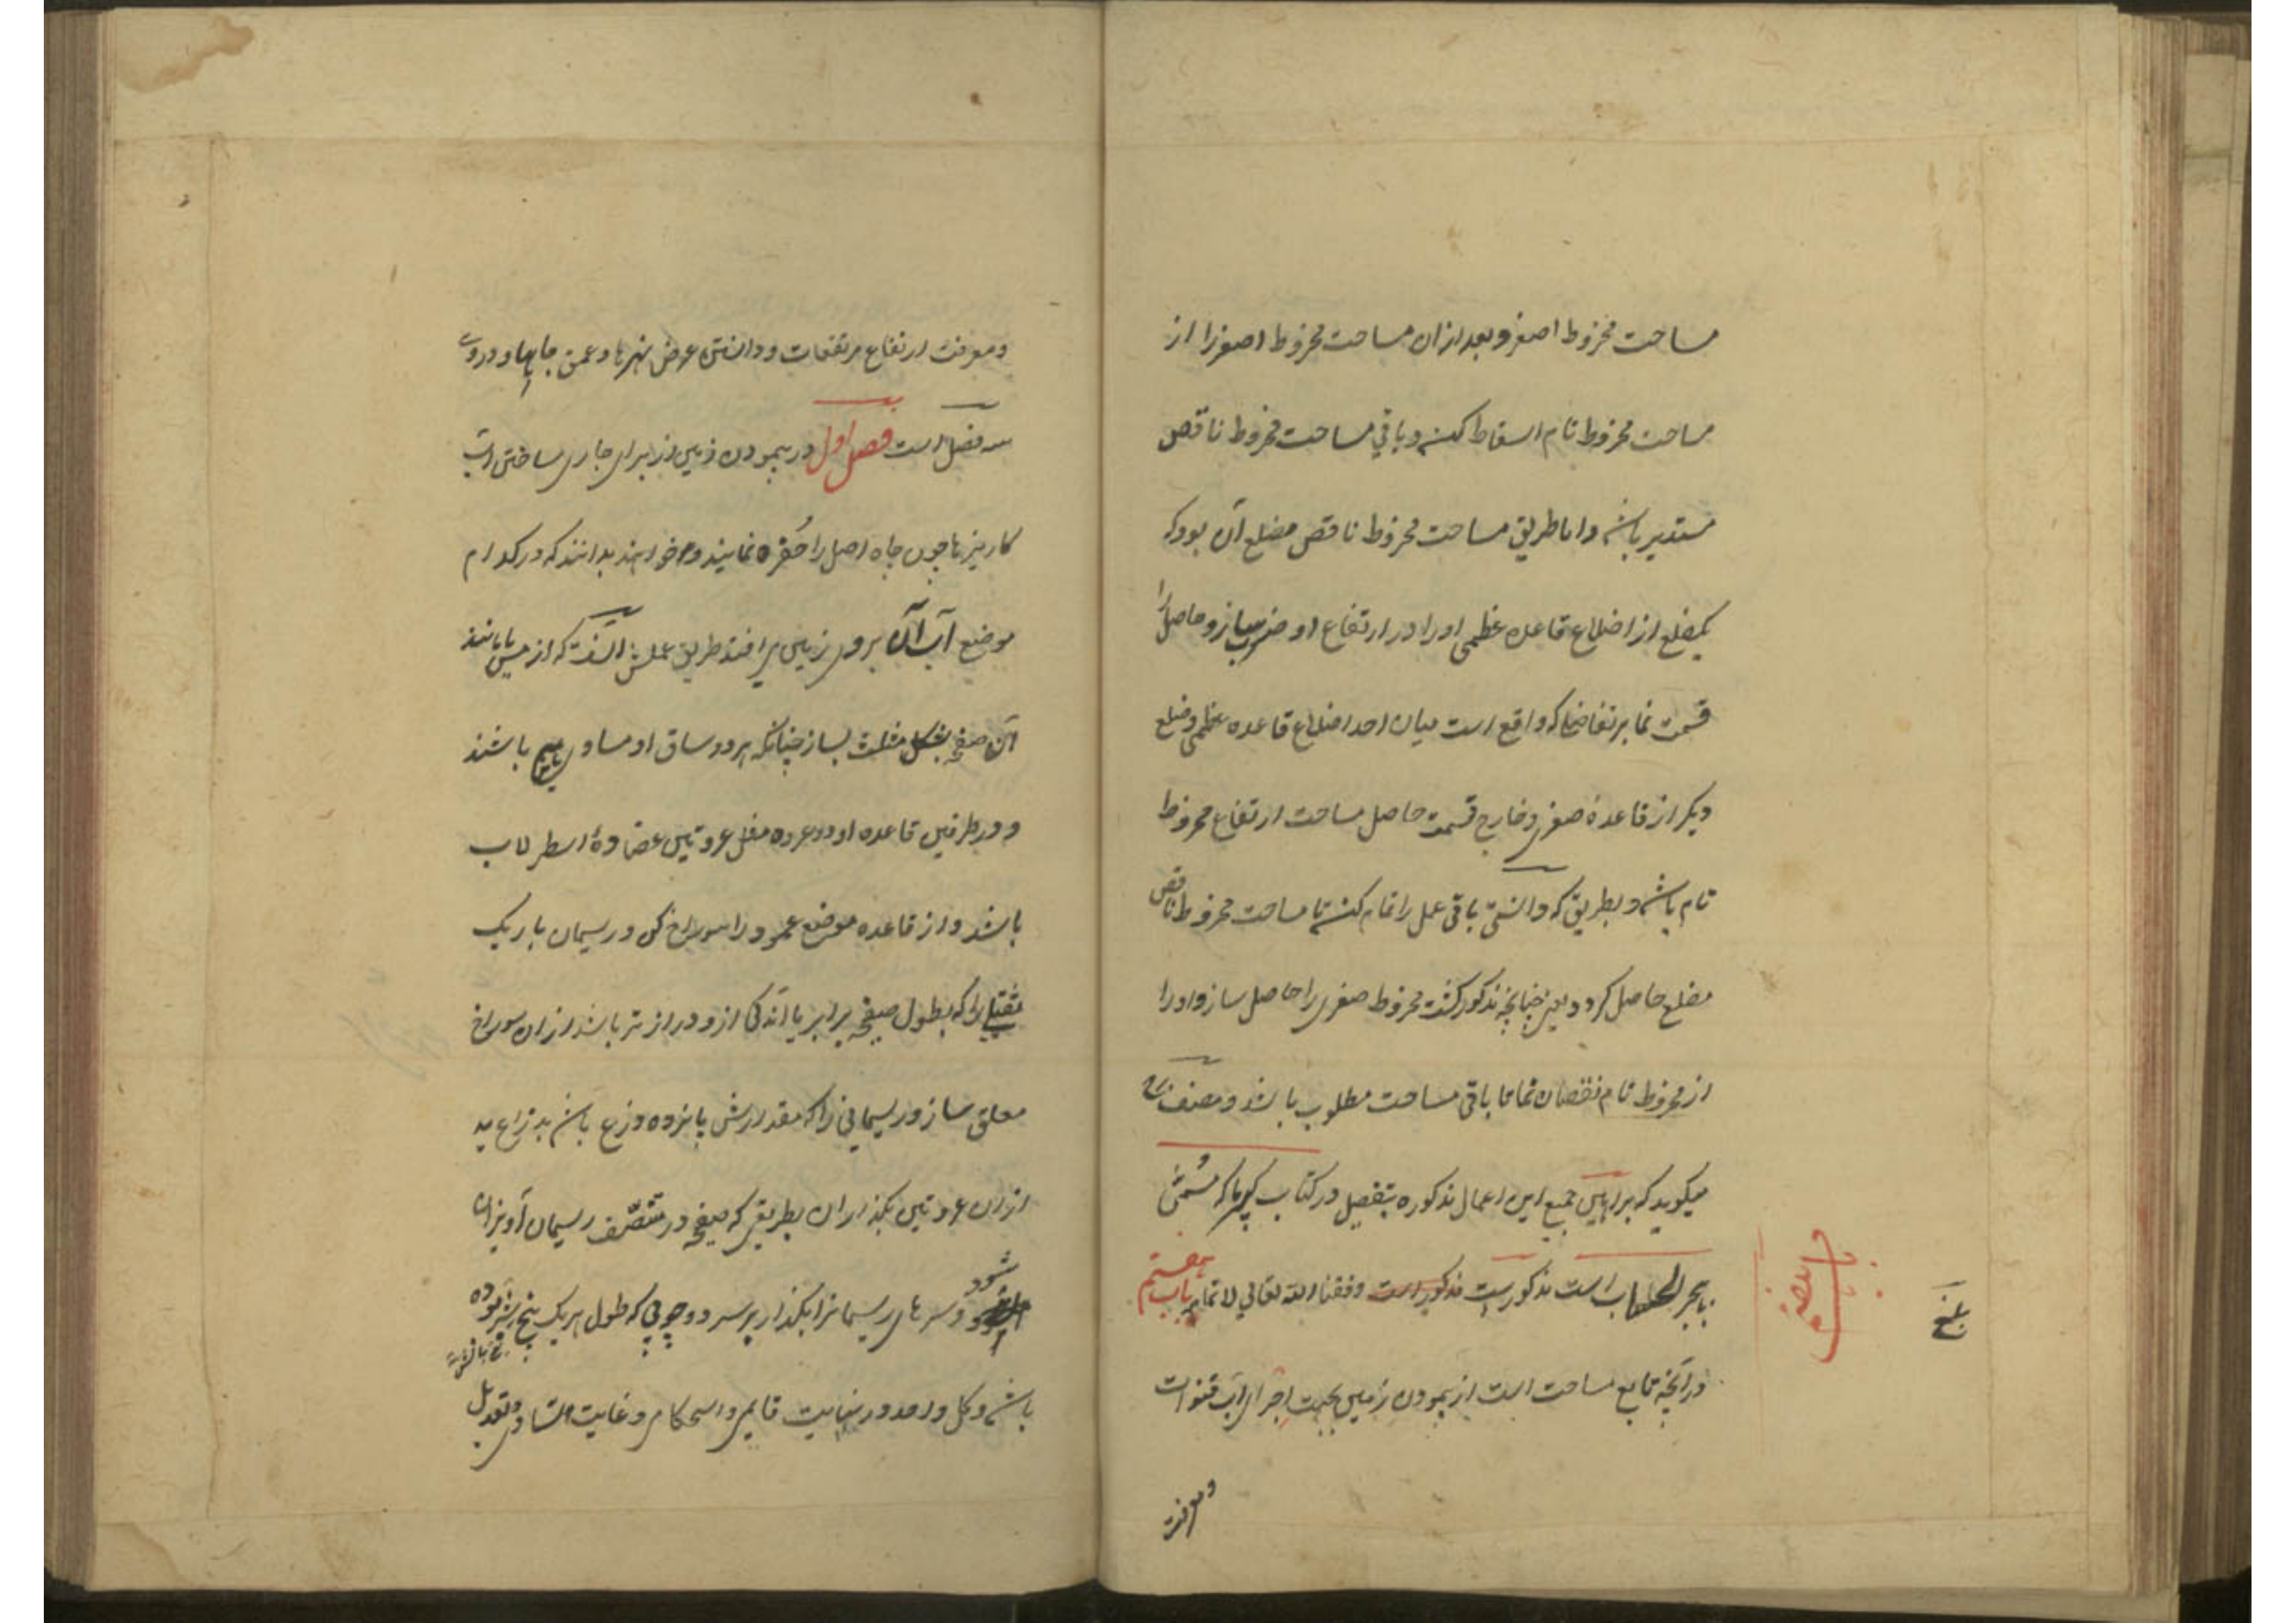 مساحت مخروط اصغر و بعد ازان مساحت مخروط اصغر را از
مساحت مخروط تام اسقاط کنند و باقی مساحت مخروط ناقص
مستدیر باشد و اما طریق مساحت مخروط ناقص مضلع آن بود که
یکضلع از اضلاع قاعده عظمی او را در ارتفاع او ضرب ساز و حاصل را
قسمت نما بر تفاضلی که واقع است میان احد اضلاع قاعده عظمی و ضلع
دیگر از قاعدهٔ صغری و خارج قسمت حاصل مساحت ارتفاع مخروط
تام باشد و بطریق که دانستی باقی عمل را تمام کن تا مساحت مخروط ناقص
مضلع حاصل کردد یعنی چنانچه مذکور کشت مخروط صغری را حاصل ساز و او را
از مخروط تام نقصان نما تا باقی مساحت مطلوب باشد و مصنف
میکوید که براهین جمیع این اعمال مذکوره بتفصیل در کتاب کبیر ما که مسمی
ببحر الحساب است مذکورست وفقنا الله تعالی لاتمامه باب هفتم
در آنچه تابع مساحت است از پیمودن زمین بجهت اجرای آب قنوات
بلغ
و معرفت
و معرفت ارتفاع مرتفعات و دانستن عرض نهرها و عمق چاهها و دروی
سه فصل است فصل اول در پیمودن زمین از برای جاری ساختن آب
کاریزها چون چاه اصل را حفره نمایند و خواهند بدانند که در کدام
موضع آب آن بروی زمین می افتد طریق عملش آنست که از مس یا مانند
آن صفحه بشکل مثلث بساز چنانکه هر دو ساق او مساوی باهم باشند
و در طرفین قاعده او دو عروه مثل عروتین عضادهٔ اسطرلاب
باشد و از قاعده موضع عمود را سوراخ کن و ریسمان باریک
ثقیلی را که بطول صفحه برابر یا اندکی ازو درازتر باشد ازان سوراخ
معلق ساز و ریسمانی را که مقدارش پانزده ذرع باشد بذراع ید
ازان عروتین بکذران بطریقی که صفحه در منتصف ریسمان آویزان
شود و سرهای ریسمانرا بکذار بر سر دو چوبی که طول هر یک پنج شبر بوده
باشد و کل واحد در نهایت قایمی و استحکام و غایت تساوی و تعدیل